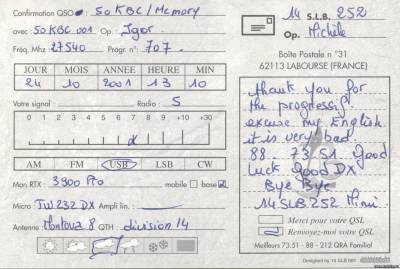 Confirmation QSO : 50 KBC / Memory
avec 50 KBC 001 Op: Igor
Fréq. Mhz 27540 Progr n°: 707.
JOUR MOIS ANNEE HEURE MIN
24 10 2001 13 10
Votre signal : Radio : 5
0 1 2 3 4 5 6 7 8 9 +10 +30
AM FM USB LSB CW
Mon RTX : 3900 Pro mobile base
Micro TW 232 DX Ampli lin. :
Antenne Mantova 8 QTH division 14
14 S.L.B. 252
Op. : Michèle
Boîte Postale n°31
62113 LABOURSE (FRANCE)
thank you for
the progressif.
excuse my English
it is very bad.
88 - 73 51. Good
Luck Good DX
Bye Bye
14 SLB 252 Mimi
Merci pour votre QSL
Renvoyez-moi votre QSL
Meilleurs 73.51 - 88 - 212 QRA Familial
Designed by 14 SLB 001